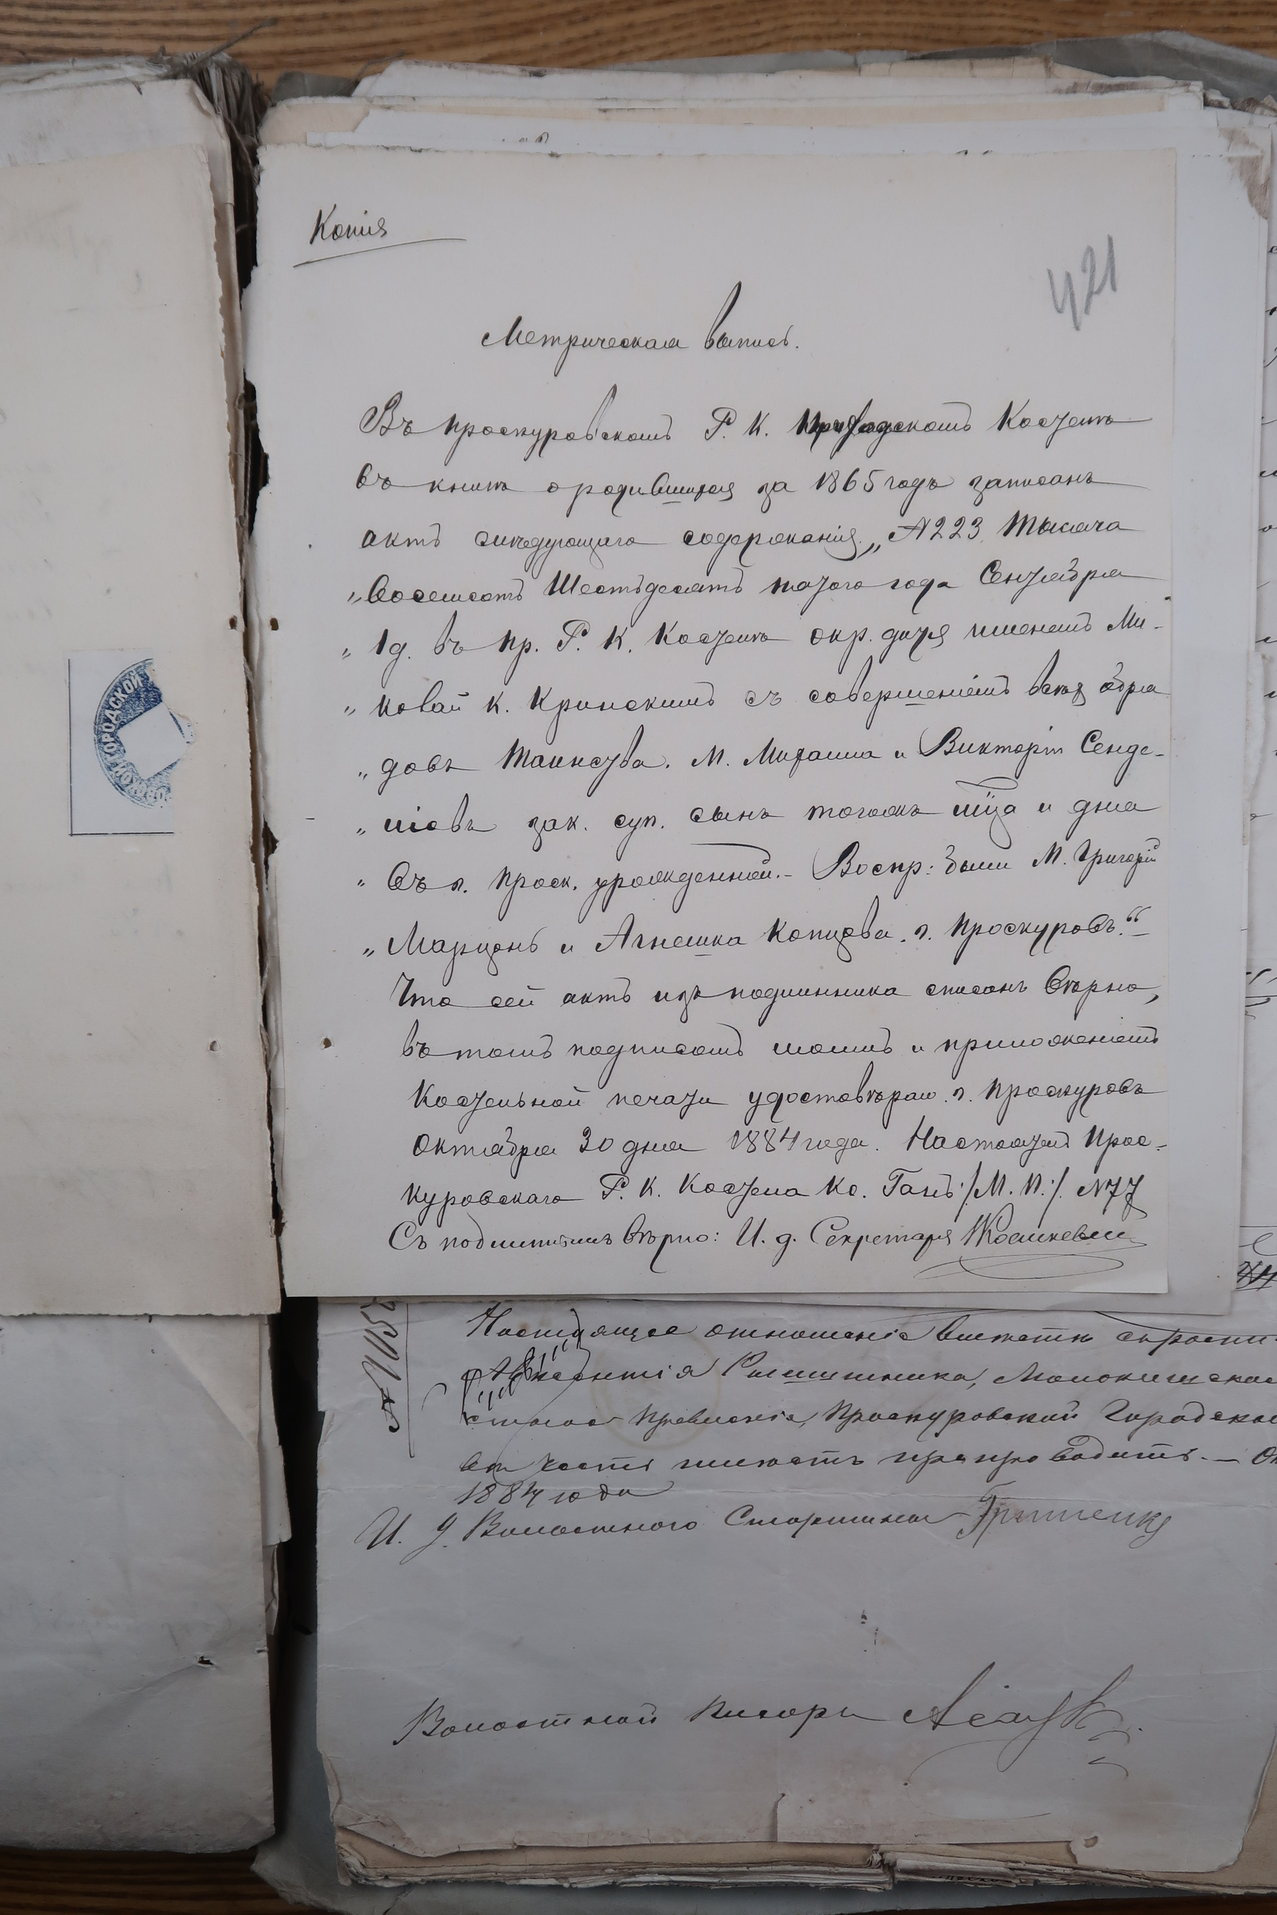 Копія
421
Метрическая выпись.
Въ Проскуровскомъ Р. К. Приходскомъ Костелѣ
въ книгѣ о родившихся за 1865 годъ записанъ
актъ слѣдующаго содержанія „N 223. Тысяча
„восемсотъ Шестьдесятъ пятого года Сентября
„ 1 д. въ Пр. Р. К. Костелѣ окр. дитя именемъ Ми-
„ К. Кринскимъ съ совершеніемъ всѣхъ обря
„довъ Таинства. М. и Викторіи Сенде-
„ зак. суп. сынъ тогожъ м̃ца и дня
„ въ г. Проск. урожденной.- Воспр: были М. Григорій
„ и Агнешка Копцева. г. Проскуровъ.“-
Что сей актъ изъ подлинника списанъ вѣрно,
въ томъ подписомъ моимъ и приложеніемъ
Костельной печати удостовѣряю. г. Проскуровъ
Октября 30 дня 1884 года. Настоятель Прос-
куровскаго Р. К. Костела Кс. Ганъ /М. П:/. N 77
Съ подлиннымъ вѣрно: И. д. Секретаря
ГОРОДСКОЙ
Настоящее отношеніе вмѣстѣ съ
Проскуровской Городской
въ честь имѣетъ препроводить. —
1884 года
И. д. Волостного Старшины Гриценко
Волостной Писарь